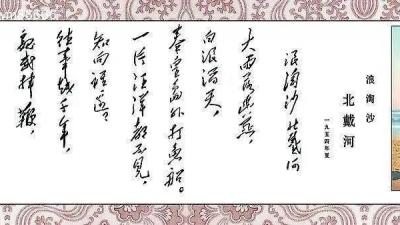 浪淘沙
北戴河
一九五四年夏
浪淘沙 北戴河
大雨落幽燕，
白浪滔天，
秦皇岛外打鱼船。
一片汪洋都不见，
知向谁边？
往事越千年，
魏武挥鞭，